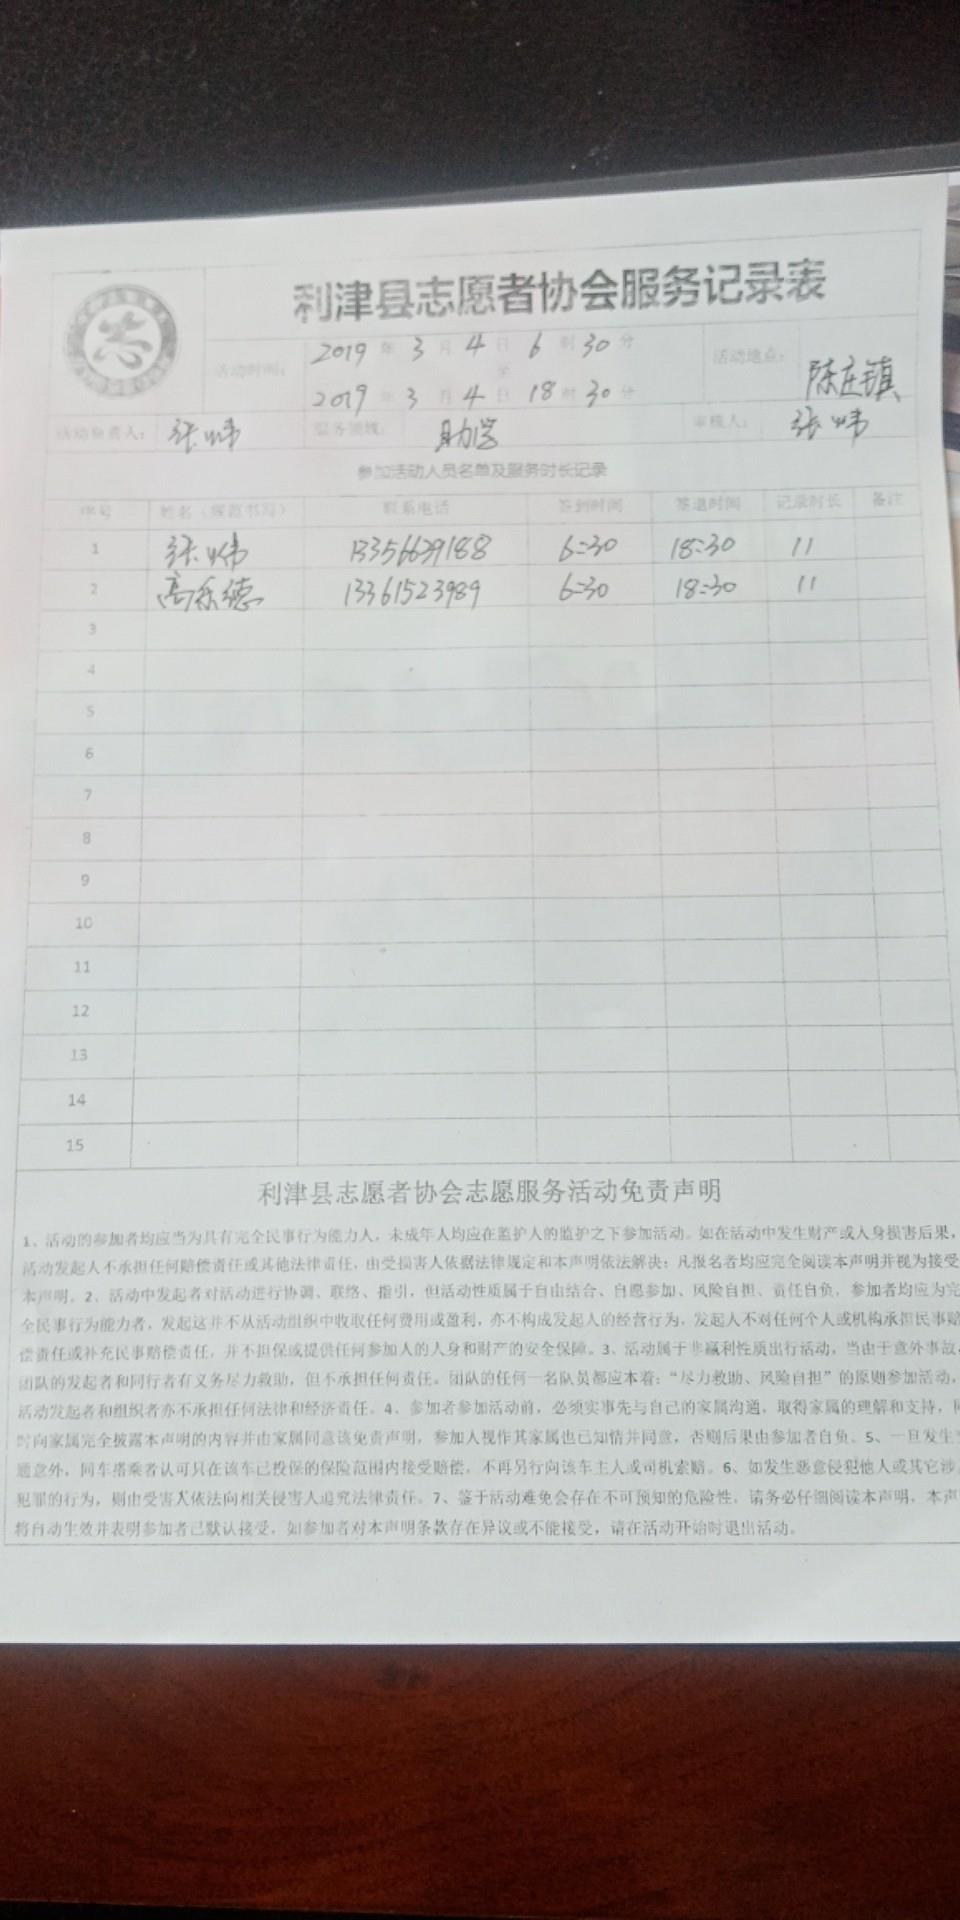 利津县志愿者协会服务记录表
活动时间：
2019 年 3 月 4 日 6 时 30 分
至
2019 年 3 月 4 日 18 时 30 分
活动地点：
陈庄镇
活动负责人：
服务领域：
助学
审核人：
参加活动人员名单及服务时长记录
序号 姓名（规范书写） 联系电话 签到时间 签退时间 记录时长 备注
1 13356639188 6:30 18:30 11
2 13361523989 6:30 18:30 11
3
4
5
6
7
8
9
10
11
12
13
14
15
利津县志愿者协会志愿服务活动免责声明
1、活动的参加者均应当为具有完全民事行为能力人，未成年人均应在监护人的监护之下参加活动。如在活动中发生财产或人身损害后果，
活动发起人不承担任何赔偿责任或其他法律责任，由受损害人依据法律规定和本声明依法解决；凡报名者均应完全阅读本声明并视为接受
本声明。2、活动中发起者对活动进行协调、联络、指引，但活动性质属于自由结合、自愿参加、风险自担、责任自负，参加者均应为完
全民事行为能力者，发起这并不从活动组织中收取任何费用或盈利，亦不构成发起人的经营行为，发起人不对任何个人或机构承担民事赔
偿责任或补充民事赔偿责任，并不担保或提供任何参加人的人身和财产的安全保障。3、活动属于非赢利性质出行活动，当由于意外事故，
团队的发起者和同行者有义务尽力救助，但不承担任何责任。团队的任何一名队员都应本着：“尽力救助、风险自担”的原则参加活动，
活动发起者和组织者亦不承担任何法律和经济责任。4、参加者参加活动前，必须实事先与自己的家属沟通，取得家属的理解和支持，同
时向家属完全披露本声明的内容并由家属同意该免责声明，参加人视作其家属也已知情并同意，否则后果由参加者自负。5、一旦发生
通意外，同车搭乘者认可只在该车已投保的保险范围内接受赔偿，不再另行向该车主人或司机索赔。6、如发生恶意侵犯他人或其它涉
犯罪的行为，则由受害人依法向相关侵害人追究法律责任。7、鉴于活动难免会存在不可预知的危险性，请务必仔细阅读本声明，本声
将自动生效并表明参加者已默认接受，如参加者对本声明条款存在异议或不能接受，请在活动开始时退出活动。